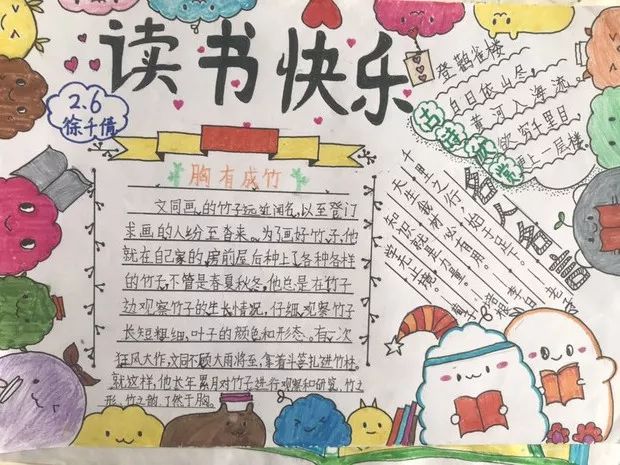 读书快乐
2.6
徐千倩
胸有成竹
文同画的竹子远近闻名,以至登门
求画的人纷至沓来。为了画好竹子,他
就在自己家的房前屋后种上了各种各样
的竹子,不管是春夏秋冬,他总是在竹子
边观察竹子的生长情况,仔细观察竹子
长短粗细,叶子的颜色和形态。有一次
狂风大作,文同不顾大雨将至,拿着斗笠扎进竹林。
就这样,他长年累月对竹子进行观察和研究,竹之
形,竹之韵,了然于胸。
登鹳雀楼
白日依山尽,
黄河入海流。
欲穷千里目,
更上一层楼
古诗欣赏
名人名言
千里之行,始于足下。 老子
天生我材必有用。 李白
知识就是力量。 培根
学无止境。 荀子